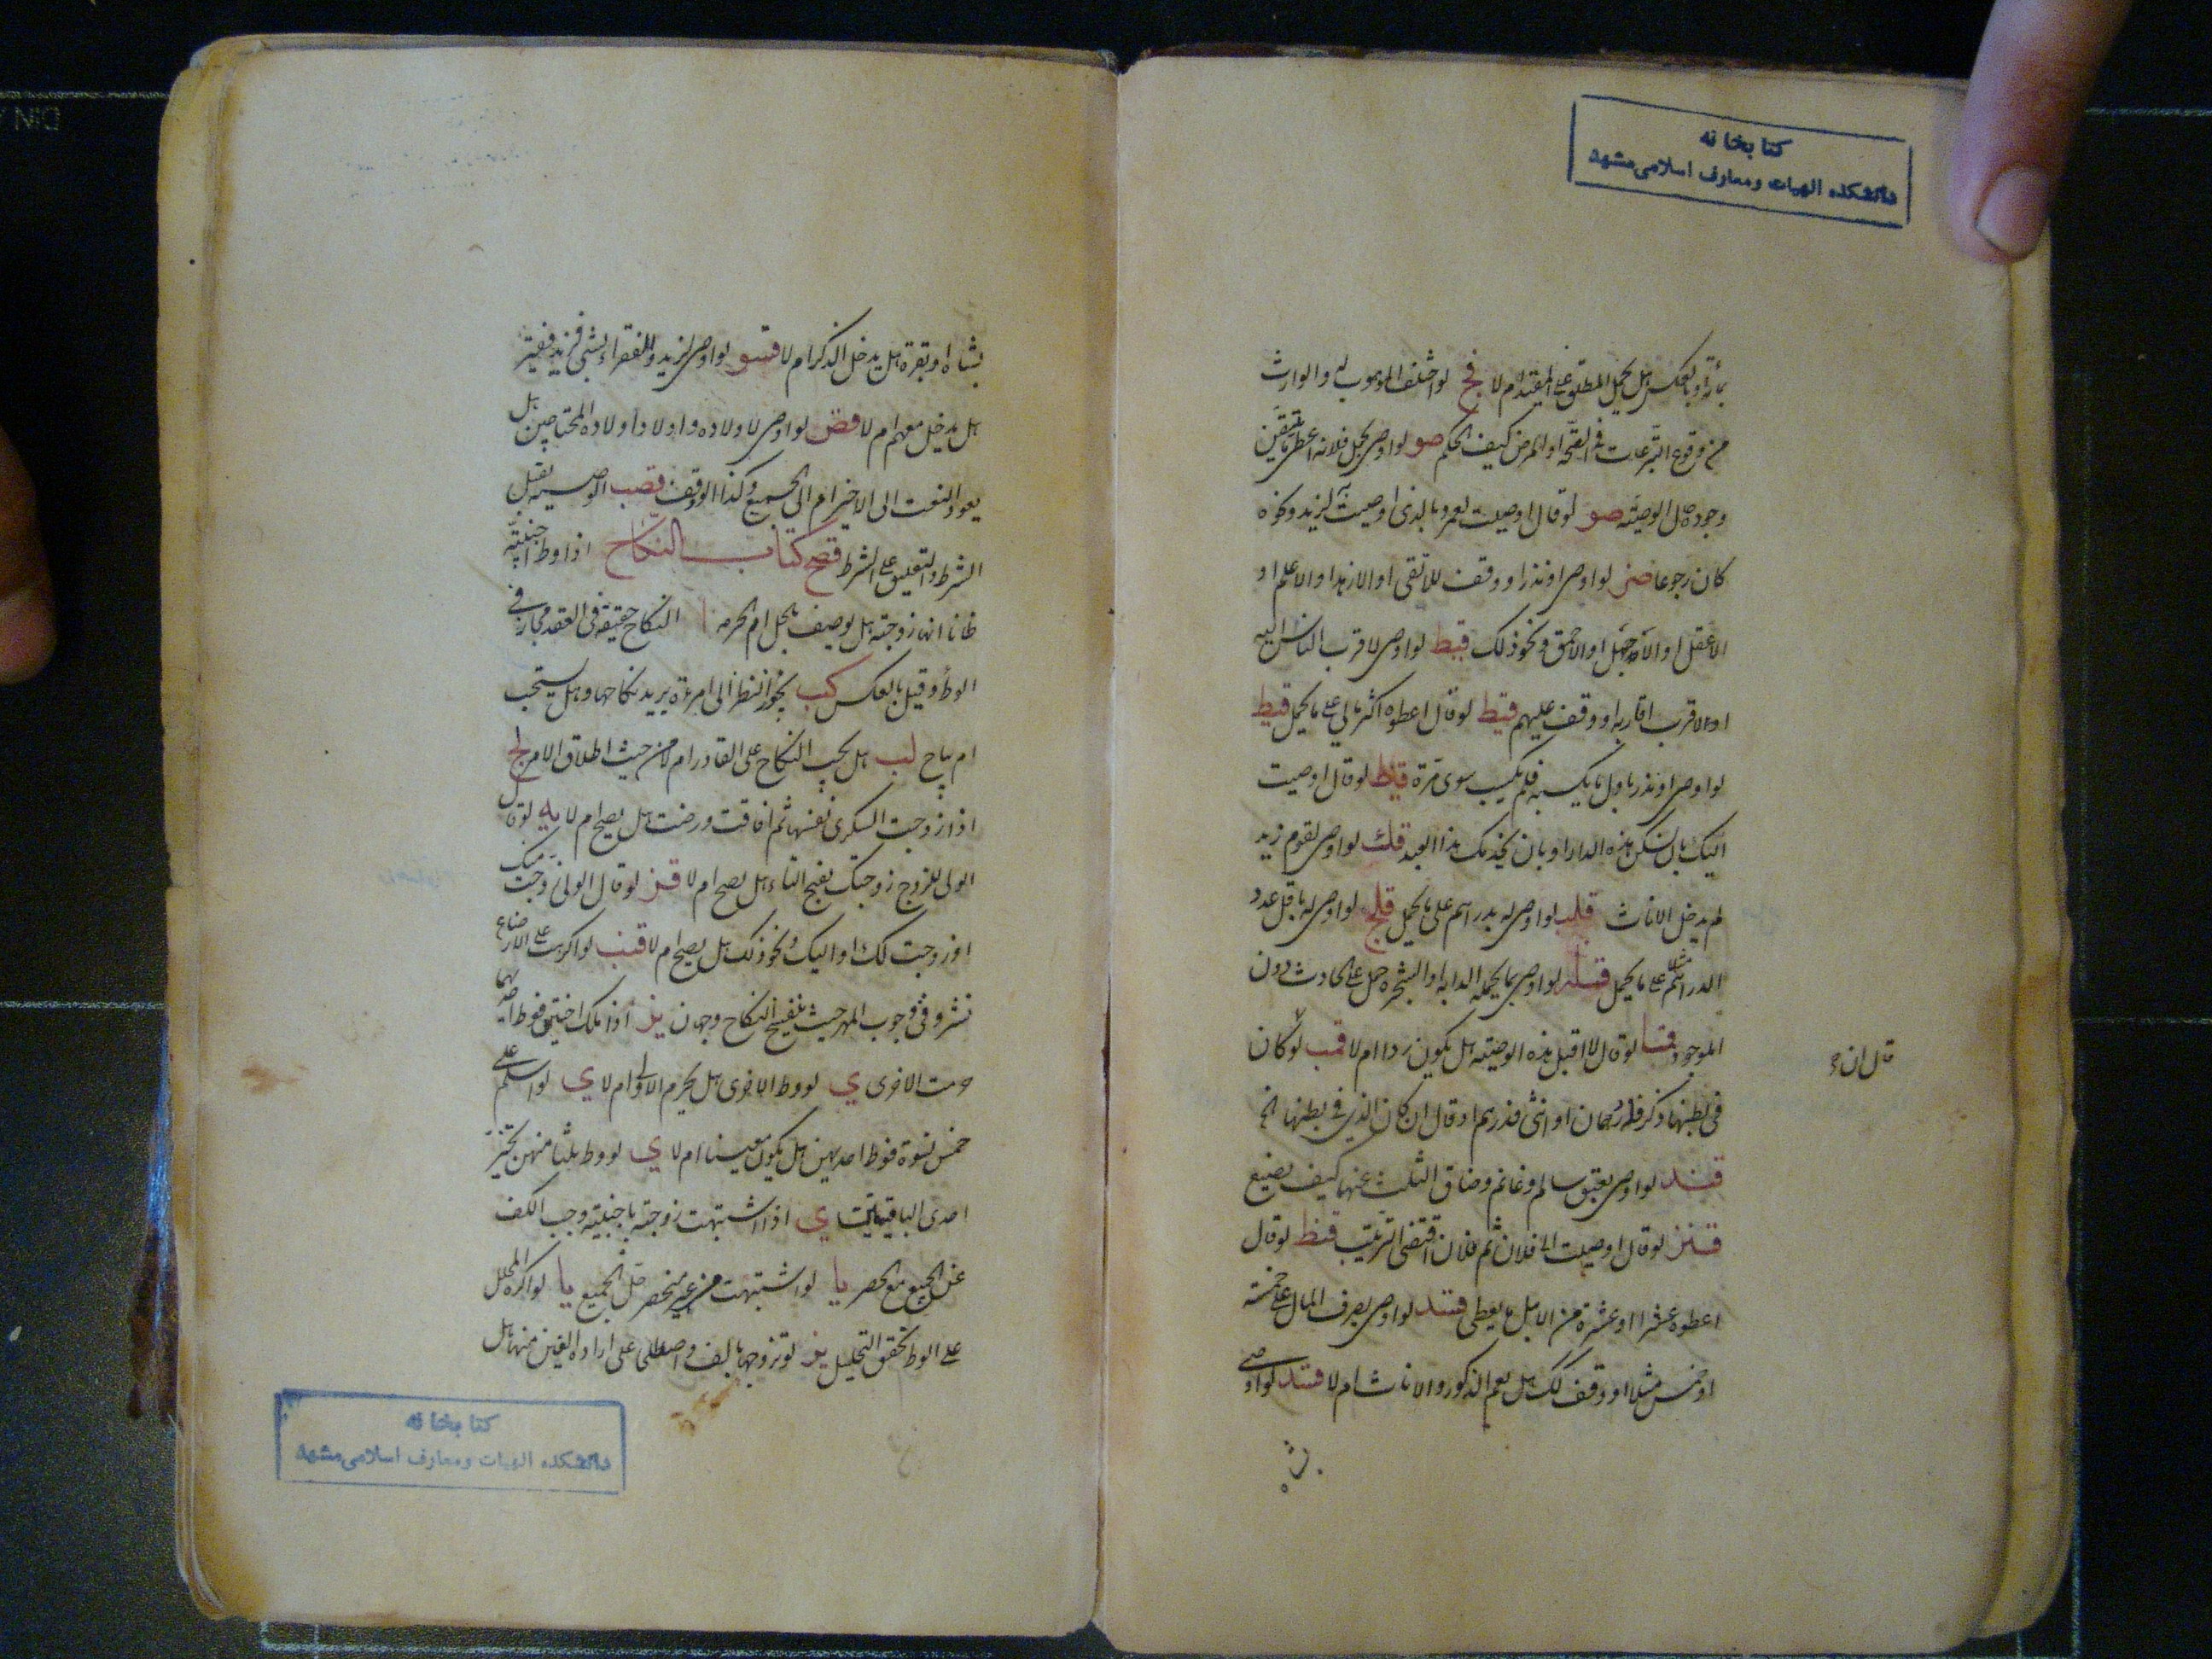 كتابخانه
دانشكده الهيات ومعارف اسلامى مشهد
بمأة او بالعكس هل يحمل المطلق على المقيد ام لا فج لو اختلف الموهوب له والوارث
فى وقوع التبرعات فى الصحة او المرض كيف الحكم صو لو اوصى لحمل فلانة اعطى ما تيقن
وجوده حال الوصية صو لو قال اوصيت لعمرو بالذى اوصيت به لزيد ونحوه
كان رجوعا لو اوصى او نذر او وقف للاتقى او الازهد او الاعلم او
الاعقل او الاجهل او الاحمق ونحو ذلك قيط لو اوصى لاقرب الناس اليه
او الاقرب اقاربه او وقف عليهم قيط لو قال اعطوه اكثر مالى على ما يحمل قيط
لو اوصى او نذر باول ما يكسبه فلم يكسب سوى مرة قيط لو قال اوصيت
اليك بان تسكن هذه الدار او بان يخدمك هذا العبد قلث لو اوصى لقوم زيد
لم يدخل الاناث قلب لو اوصى له بدراهم على ما يحمل قلج لو اوصى له باقل عدد
الدراهم على ما يحمل لو اوصى بما يحمله الدابة او الشجرة حمل على الحادث دون
الموجود لو قال لا اقبل هذه الوصية هل يكون ردا ام لا قمب لو كان
قال ان
فى بطنها ذكر فله درهمان او انثى فدرهم او قال ان كان الذى فى بطنها الخ
قند لو اوصى بعتق سالم وغانم وضاق الثلث عنهما كيف يصنع
لو قال اوصيت الى فلان ثم فلان اقتضى الترتيب قنط لو قال
اعطوه عشرا او عشرة من الابل ما يعطى لو اوصى بصرف المال على خمسة
او خمس مثلا او وقف كك هل يعم الذكور والاناث ام لا لو اوصى
بشاة او بقرة هل يدخل الذكر ام لا قسو لو اوصى لزيد وللفقراء بشئ فزيد فقير
هل يدخل معهم ام لا قض لو اوصى لاولاده واولاد اولاده المحتاجين هل
يعود النعت الى الاخير ام الى الجميع وكذا الوقف قصب الوصية تقبل
الشرط والتعليق على الشرط قصح كتاب النكاح اذا وطئ اجنبية
ظانا انها زوجته هل يوصف بالحل ام الحرمة ا النكاح حقيقة فى العقد مجاز فى
الوطئ وقيل بالعكس كب يجوز النظر الى امرءة يريد نكاحها وهل يستحب
ام يباح لب هل يجب النكاح على القادر ام لا من حيث اطلاق الامر لج
اذا زوجت السكرى نفسها ثم افاقت ورضت هل يصح ام لا يه لو قال
الولى للزوج زوجتك بفتح التاء هل يصح ام لا لو قال الولى زوجت منك
او زوجت لك او اليك ونحو ذلك هل يصح ام لا لو اكرهت على الارضاع
نشر وفى وجوب المهر حيث ينفسخ النكاح وجهان يز اذا ملك اختين فوطئ احديهما
حرمت الاخرى ى لو وطئ الاخرى هل يحرم الاولى ام لا ى لو اسلم على
خمس نسوة فوطئ احديهن هل يكون تعيينا ام لا ى لو وطئ ثلثا منهن يتخير
احدى الباقيتين ى اذا اشتبهت زوجته باجنبية وجب الكف
عن الجميع مع الحصر يا لو اشتبهت فى غير منحصر حل الجميع يا لو اكره المحلل
على الوطئ تحقق التحليل يز لو تزوجها بالف واصطلحا على ارادة الفين منها هل
كتابخانه
دانشكده الهيات ومعارف اسلامى مشهد